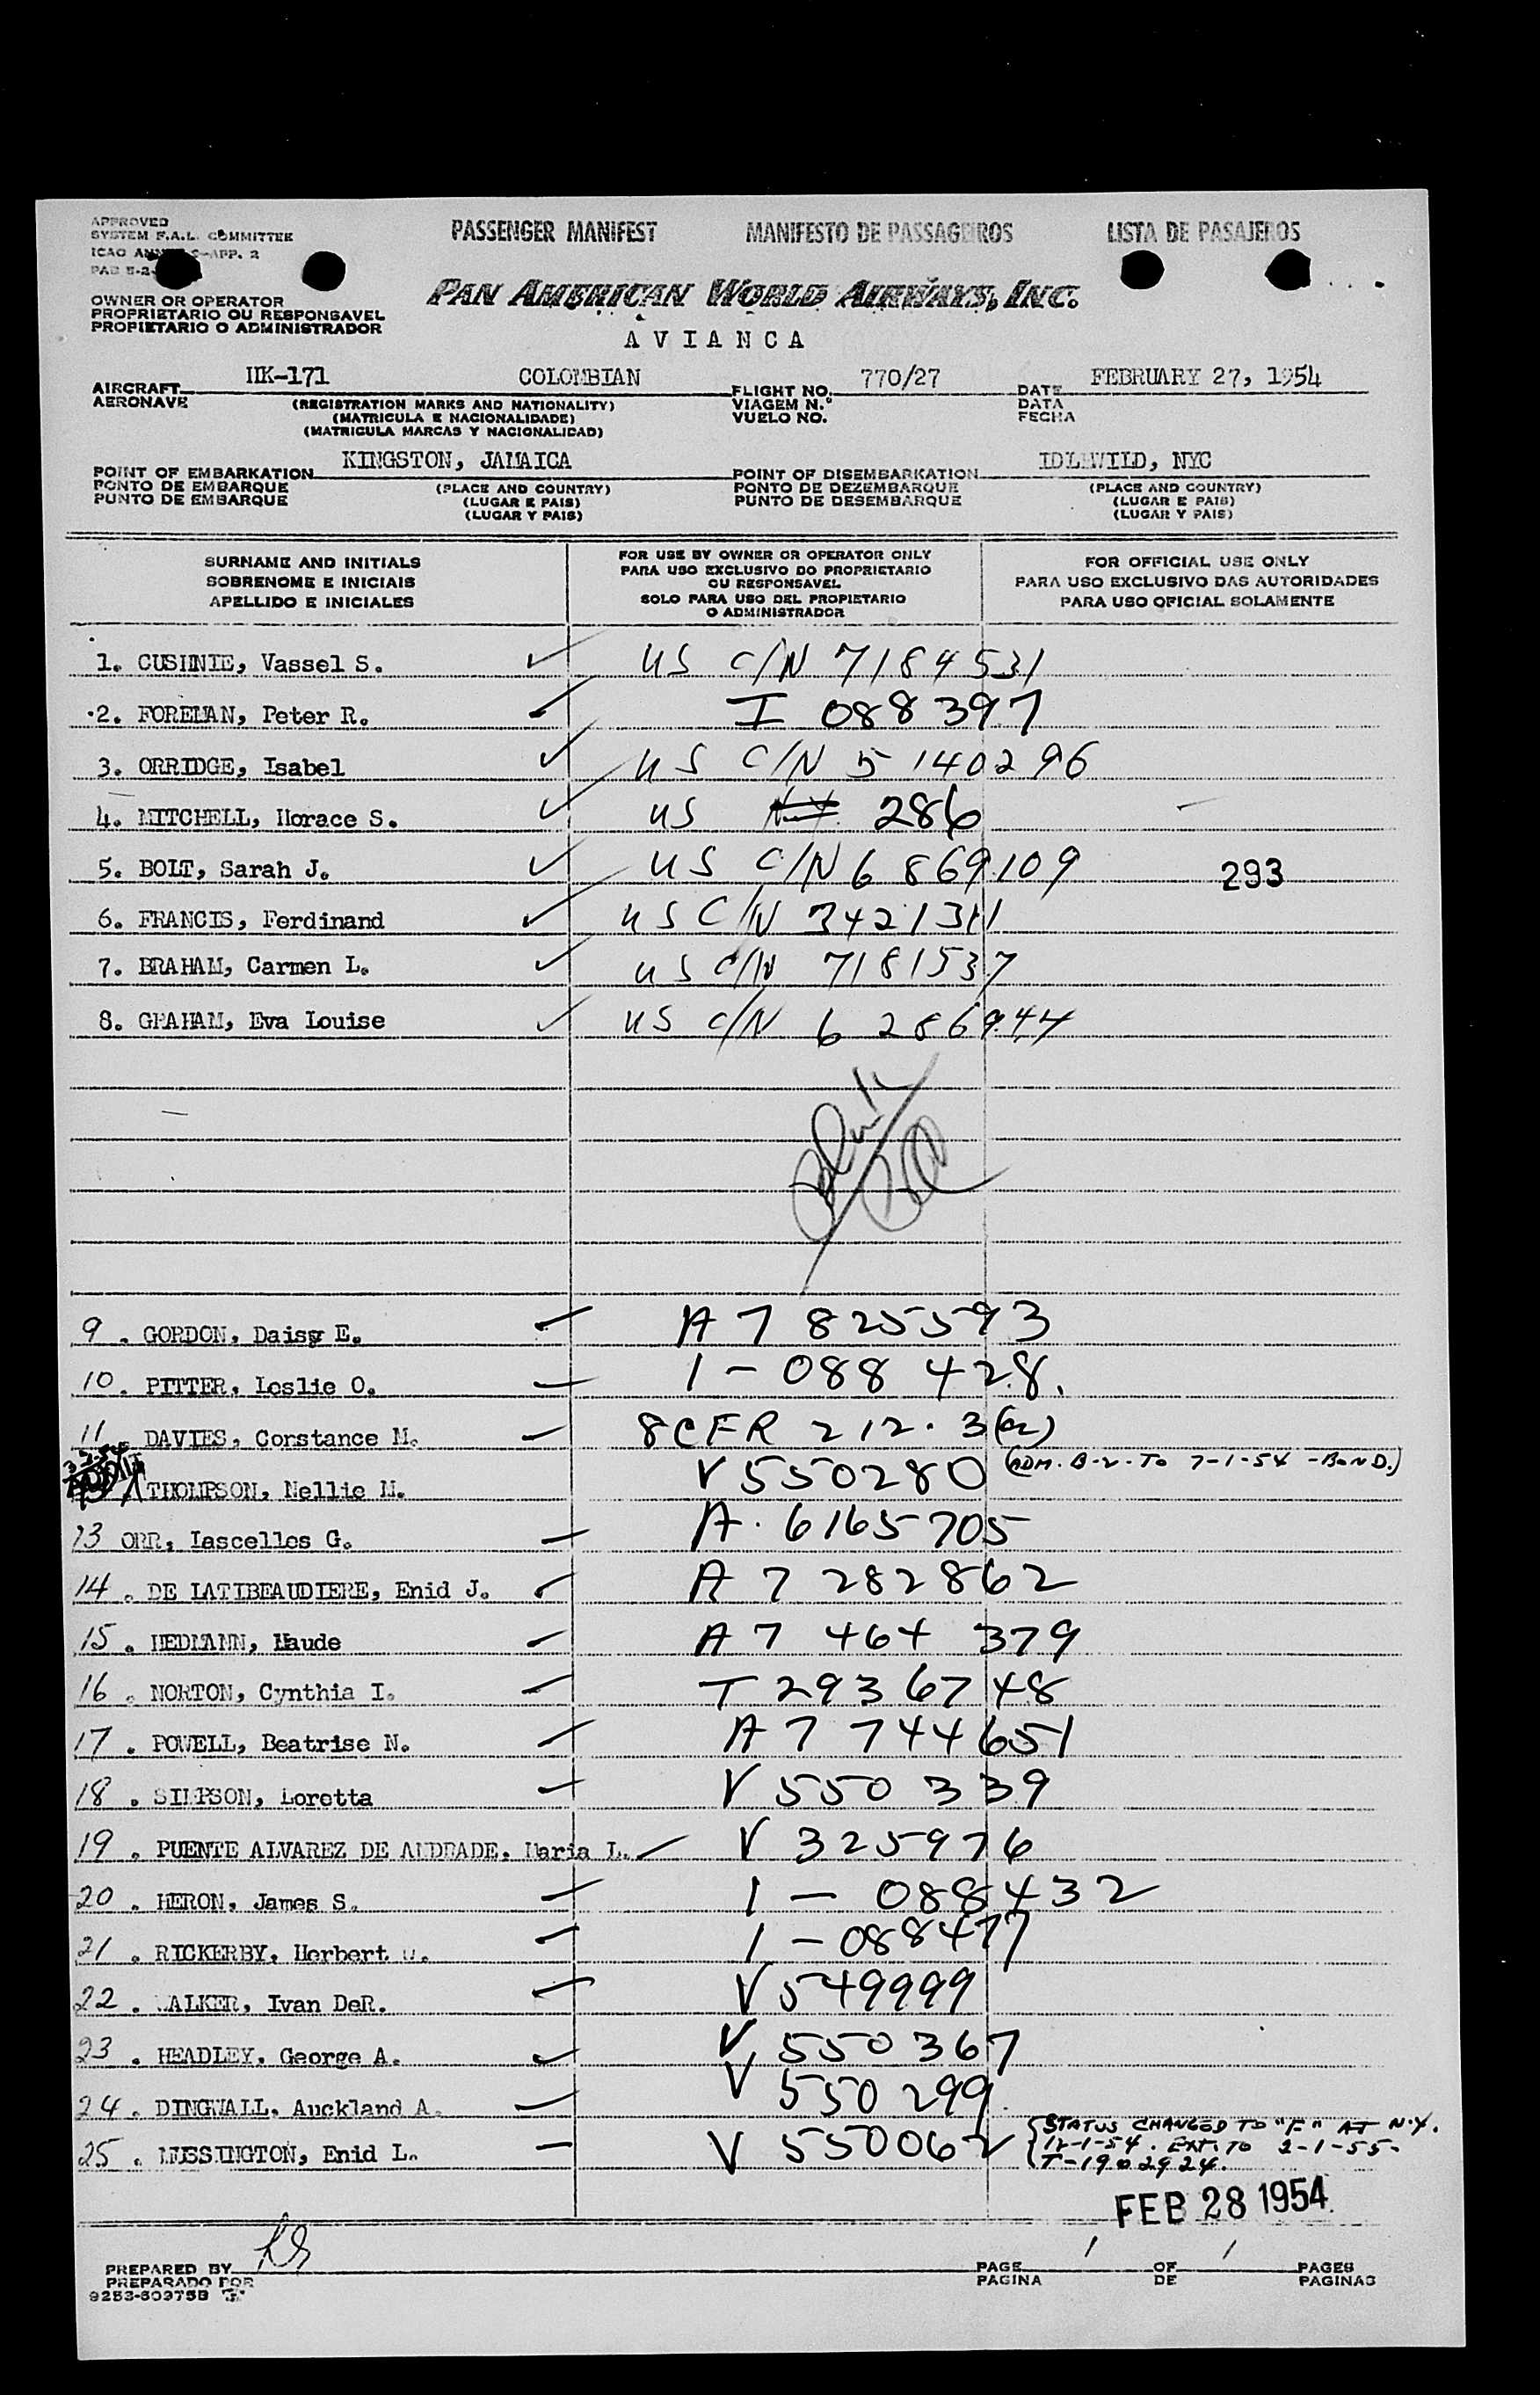 APPROVED
SYSTEM F.A.L. COMMITTEE
ICAO APP. 2
PASSENGER MANIFEST MANIFESTO DE PASSAGEIROS LISTA DE PASAJEROS
OWNER OR OPERATOR
PROPRIETARIO OU RESPONSAVEL
PROPIETARIO O ADMINISTRADOR
PAN AMERICAN WORLD AIRWAYS, INC.
AVIANCA
AIRCRAFT HK-171 COLOMBIAN FLIGHT NO. 770/27 DATE FEBRUARY 27, 1954
AERONAVE (REGISTRATION MARKS AND NATIONALITY) VIAGEM N.º DATA
(MATRICULA E NACIONALIDADE) VUELO NO. FECHA
(MATRICULA MARCAS Y NACIONALIDAD)
POINT OF EMBARKATION KINGSTON, JAMAICA POINT OF DISEMBARKATION IDLEWILD, NYC
PONTO DE EMBARQUE (PLACE AND COUNTRY) PONTO DE DEZEMBARQUE (PLACE AND COUNTRY)
PUNTO DE EMBARQUE (LUGAR E PAIS) PUNTO DE DESEMBARQUE (LUGAR E PAIS)
(LUGAR Y PAIS) (LUGAR Y PAIS)
SURNAME AND INITIALS
SOBRENOME E INICIAIS
APELLIDO E INICIALES
FOR USE BY OWNER OR OPERATOR ONLY
PARA USO EXCLUSIVO DO PROPRIETARIO
OU RESPONSAVEL
SOLO PARA USO DEL PROPIETARIO
O ADMINISTRADOR
FOR OFFICIAL USE ONLY
PARA USO EXCLUSIVO DAS AUTORIDADES
PARA USO OFICIAL SOLAMENTE
1. CUSHNIE, Vassel S. ✓ US C/N 7184531
2. FOREMAN, Peter R. ✓ I 088397
3. ORRIDGE, Isabel ✓ US C/N 5 140296
4. MITCHELL, Horace S. ✓ US 286
5. BOLT, Sarah J. ✓ US C/N 6 869109 293
6. FRANCIS, Ferdinand ✓ US C/N 3421311
7. BRAHAM, Carmen L. ✓ US C/N 7181537
8. GRAHAM, Eva Louise ✓ US C/N 6 286944
9. GORDON, Daisy E. A7 825593
10. PITTER, Leslie O. 1-088 428.
11. DAVIES, Constance M. 8CFR 212.3(a)
THOMPSON, Nellie M. V 550280 (ADM. B-2. TO 7-1-54 - BOND.)
13 ORR, Lascelles G. A. 6165705
14. DE LATIBEAUDIERE, Enid J. A 7 282862
15. HEDMANN, Maude A7 464 379
16. NORTON, Cynthia I. T 2936748
17. POWELL, Beatrise N. A7 744651
18. SIMPSON, Loretta V 550 339
19. PUENTE ALVAREZ DE ANDRADE, Maria L. V 325976
20. HERON, James S. 1 - 088432
21. RICKERBY, Herbert 1 - 088477
22. WALKER, Ivan DeR. V 549999
23. HEADLEY, George A. V 550367
24. DINGWALL, Auckland A. V 550299
25. Enid L. V 550062 STATUS CHANGED TO "F" AT N.Y.
12-1-54. EXT. TO 2-1-55-
T-1902924.
FEB 28 1954
PREPARED BY PAGE 1 OF 1 PAGES
PREPARADO POR PAGINA DE PAGINAS
9253-50375B